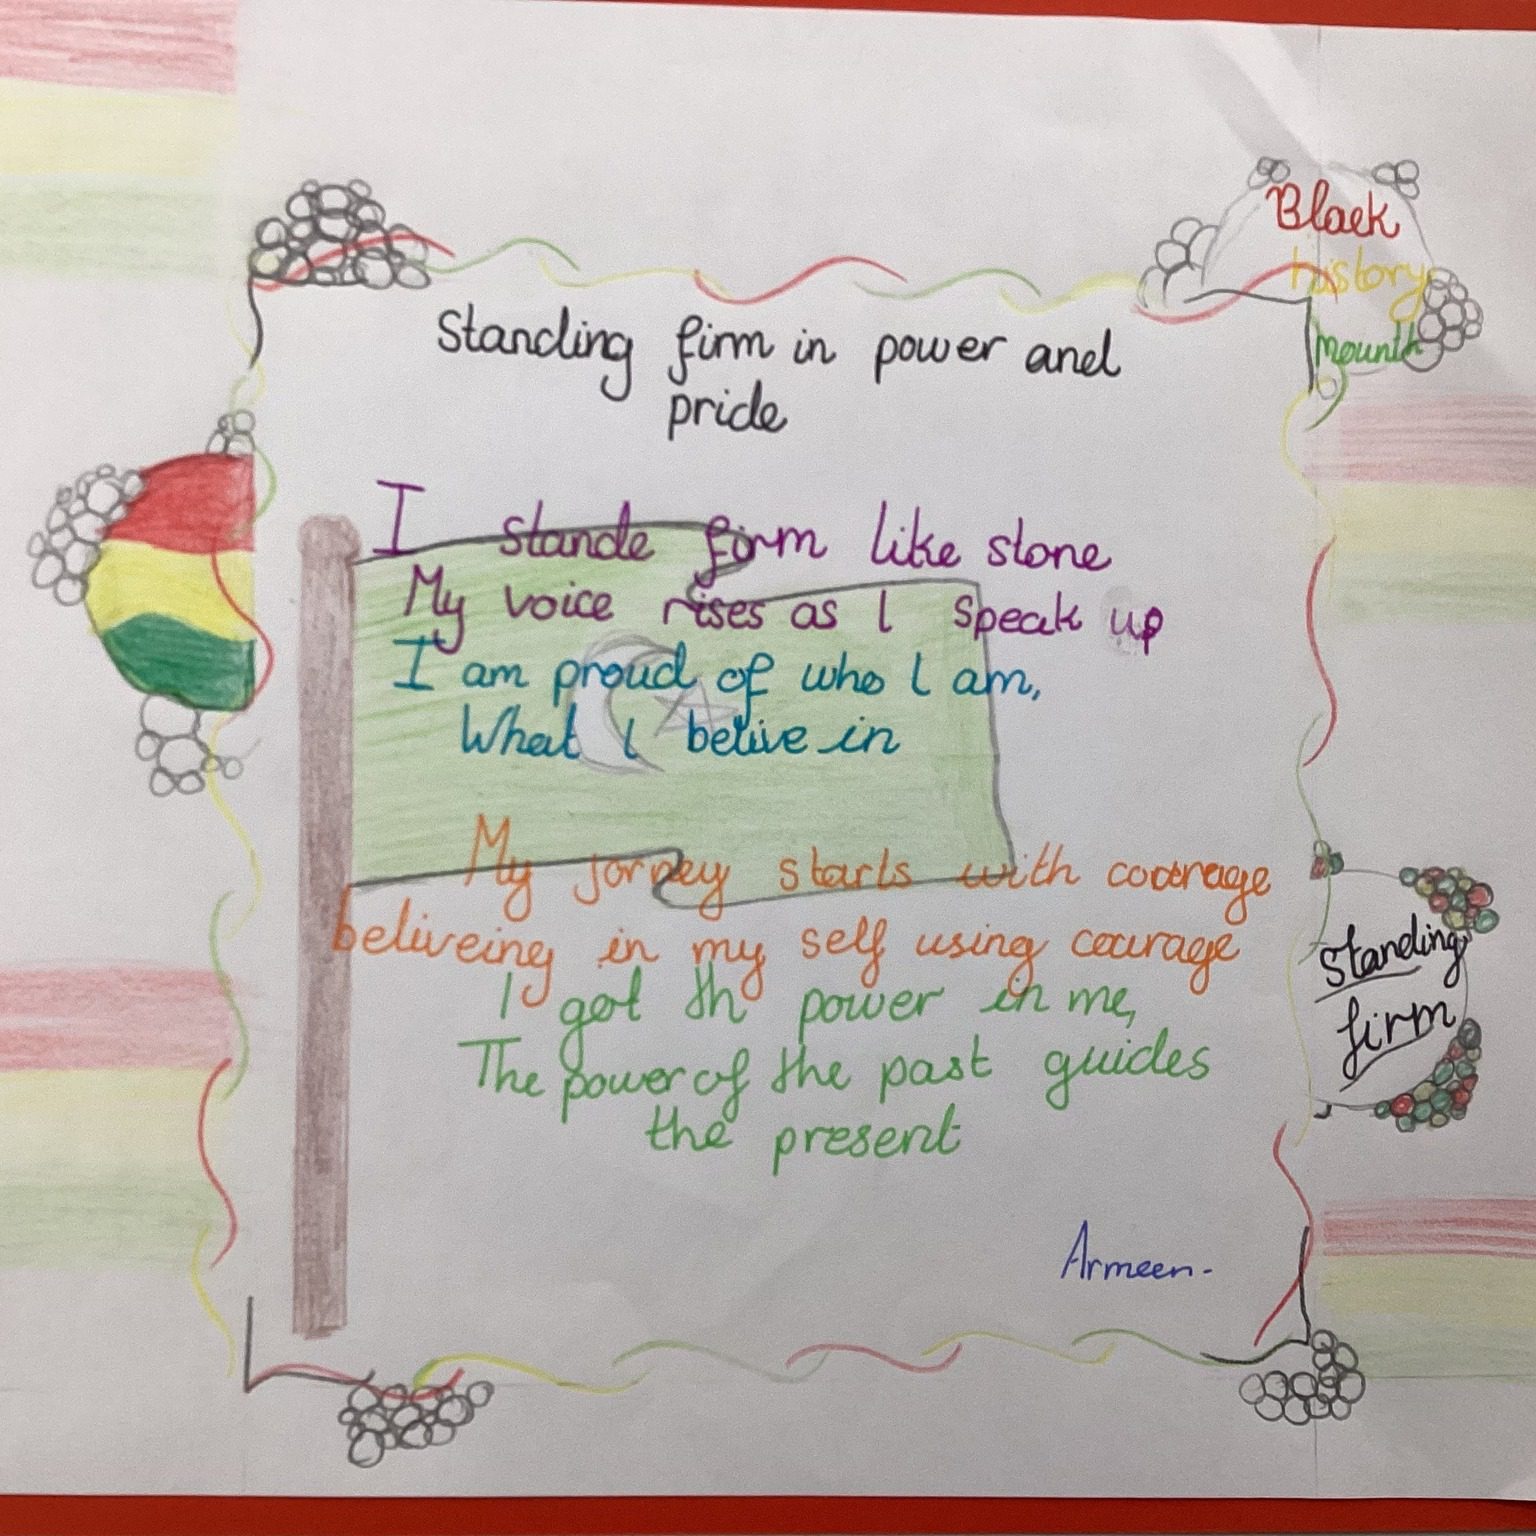 Black
history
mounth
Standing firm in power and
pride
I stande firm like stone
My voice rises as I speak up
I am proud of who I am,
What I belive in
My jorney starts with courage
beliveing in my self using courage
I got th power in me,
The power of the past guides
the present
Standing
firm
Armeen-